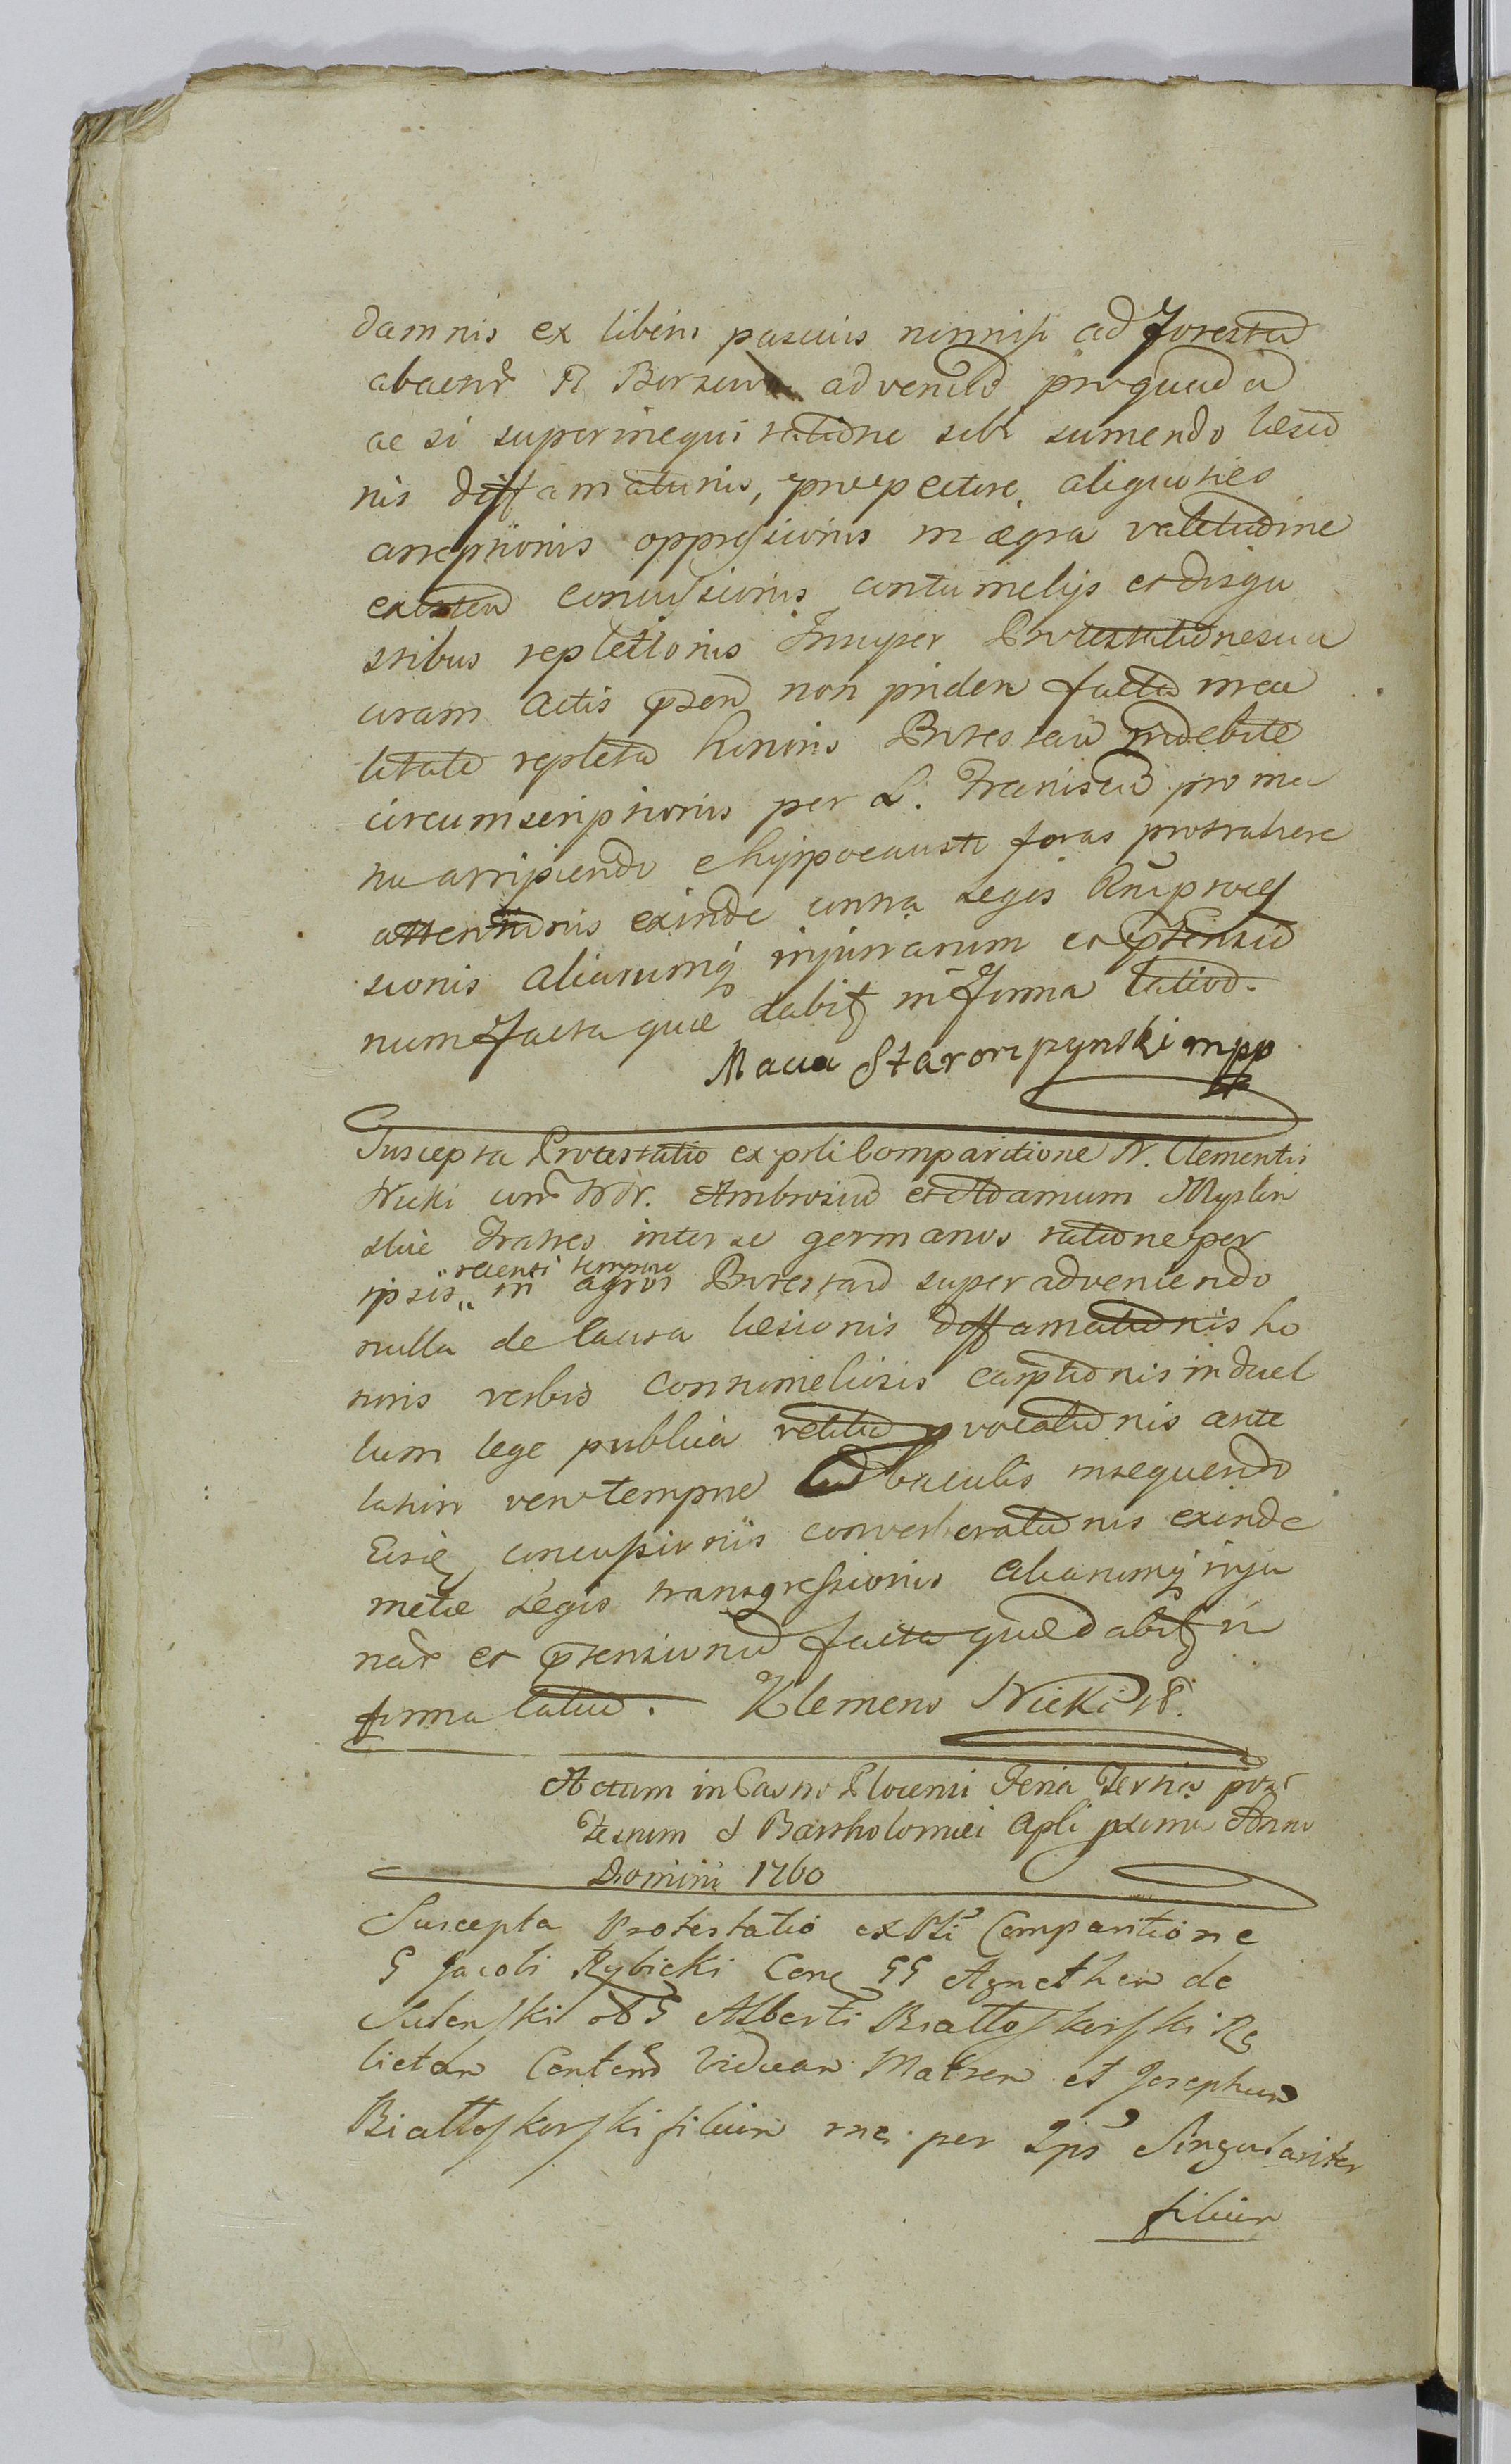 damnis ex liberis pascuis nonnisi ad Forestam
abaent R Borzewo advenien proquada
ac si superinequi ratione sibi sumendo laesio
nis diffamationis, propectore aliquoties
arreptionis oppressionis in aegra valetudine
existen concussionis contumelijs et disgu
stibus repletionis Insuper Protestationes sua
coram Actis psen non pridem facta mea
litate repleta honoris Protestan indebite
circumscriptionis per L. Franciscu pro ma
nu arripiendo e hyppocausto foras protrahere
attentionis exinde contra Legis
sionis aliarumq injuriarum et ptensio
num Facta quae dabit in Forma latior.
Macie Staroripynski mpp
Suscepta Protestatio ex psli Comparitione N. Clementis
Nicki con NN. Ambrosiu et Adamum Myslin
skie Fratres inter se germanos ratione per
recenti tempore
ipsis " in agros Protestan superadveniendo
nulla de Causa laesionis diffamationis ho
noris verbis contumeliosis carptionis in duel
lum lege publica vetitu provocationis ante
lation vero tempore cu baculis insequendo
Eisq concussionis converberationis exinde
metae Legis transgressionis aliarumq inju
riar et ptensionu facta quae dabit in
forma latio. Klemens Nicki
Actum in Castro Plocensi Feria Tertia post
Festum S Bartholomei Apli proxima Anno
Domini 1760
Suscepta Protestatio ex Psti Comparitione
G Jacobi Rybicki Con GG Agnethen de
Sulenski Alberti Biattoskorski Re
lictan Conten Viduan Matren et Josephum
Biattoskorski filium per Ips Singulariter
filium